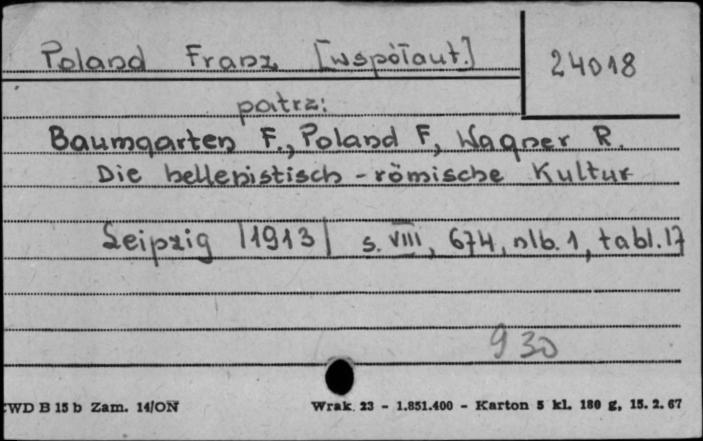 Poland Franz [współaut.]
24018
patrz:
Baumgarten F., Poland F, Wagner R.
Die hellenistisch - römische Kultur
Leipzig |1913| s. VIII, 674, nlb. 1, tabl. 17
930
WD B 15 b Zam. 14/ON
Wrak. 23 - 1.851.400 - Karton 5 kl. 180 g, 15. 2. 67